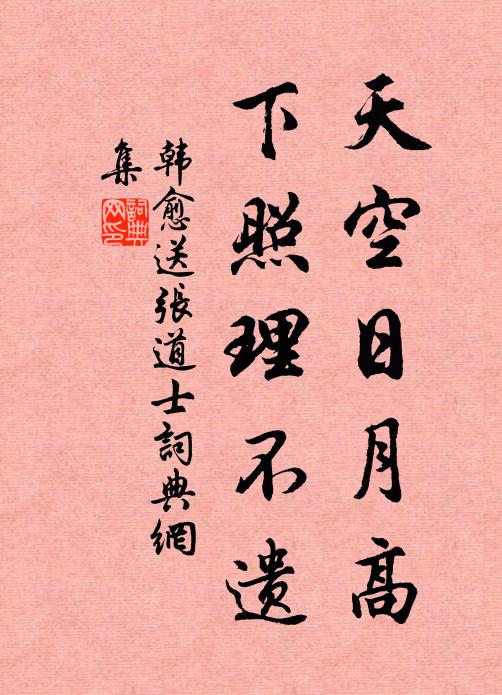 天空日月高
下照理不遗
韩愈送張道士詞典網
集
詞典網印